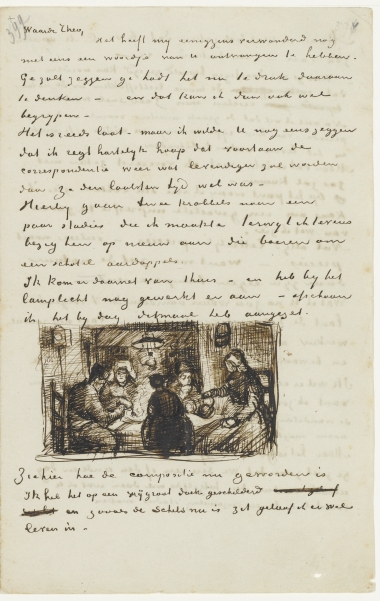 Waarde Theo,
Het heeft mij eenigzins verwonderd nog
niet eens een woordje van u ontvangen te hebben.
Ge zult zeggen ge hadt het nu te druk daaraan
te denken – en dat kan ik dan ook wel
begrijpen –
Het is reeds laat – maar ik wilde U nog eens zeggen
dat ik regt hartelijk hoop dat voortaan de
correspondentie weer wat levendiger zal worden
dan ze den laatsten tijd wel was –
Hierbij gaan twee krabbels naar een
paar studies die ik maakte terwijl ik tevens
bezig ben op nieuw aan die boeren om
een schotel aardappels
Ik kom er daarnet van thuis – en heb bij het
lamplicht nog gewerkt er aan – ofschoon
ik het bij dag ditmaal heb aangezet.
Ziehier hoe de compositie nu geworden is
Ik heb het op een vrij groot doek geschilderd
en zooals de schets nu is zit geloof ik er wel
leven in –